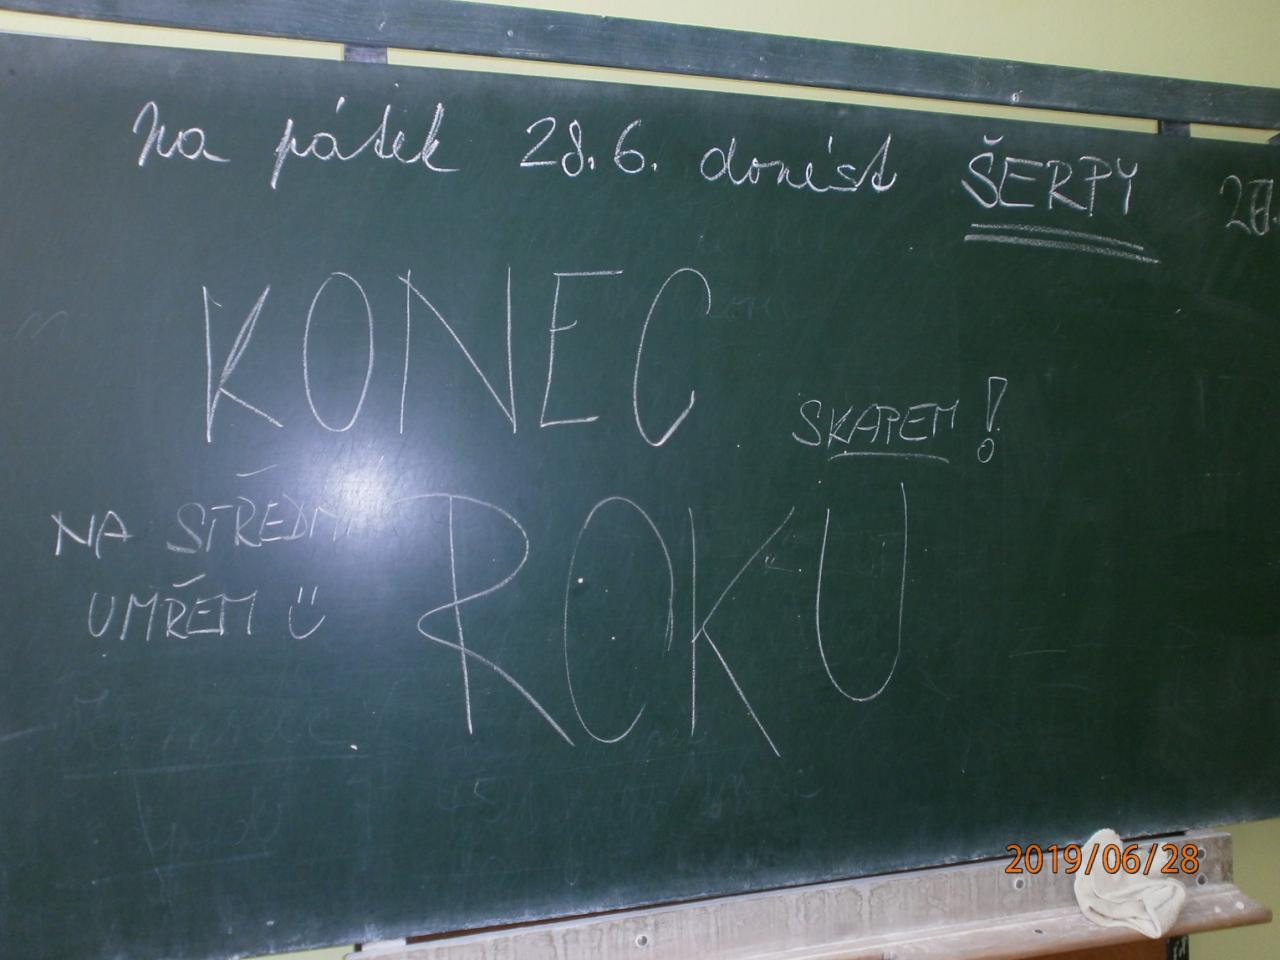 Na pátek 28.6. donést ŠERPY
KONEC
SKAPEM!
NA STŘEDNÍ
ROKU
UMŘEM Ü
2019/06/28